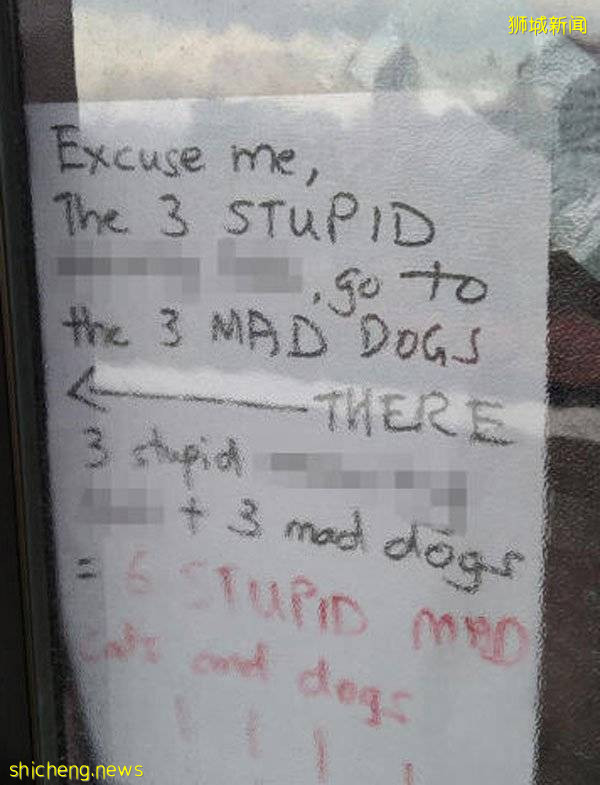 狮城新闻
Excuse me,
The 3 STUPID
, go to
the 3 MAD DOGS
THERE
3 stupid
+ 3 mad dogs
= 6 STUPID MAD
cats and dogs
! ! ! !
shicheng.news